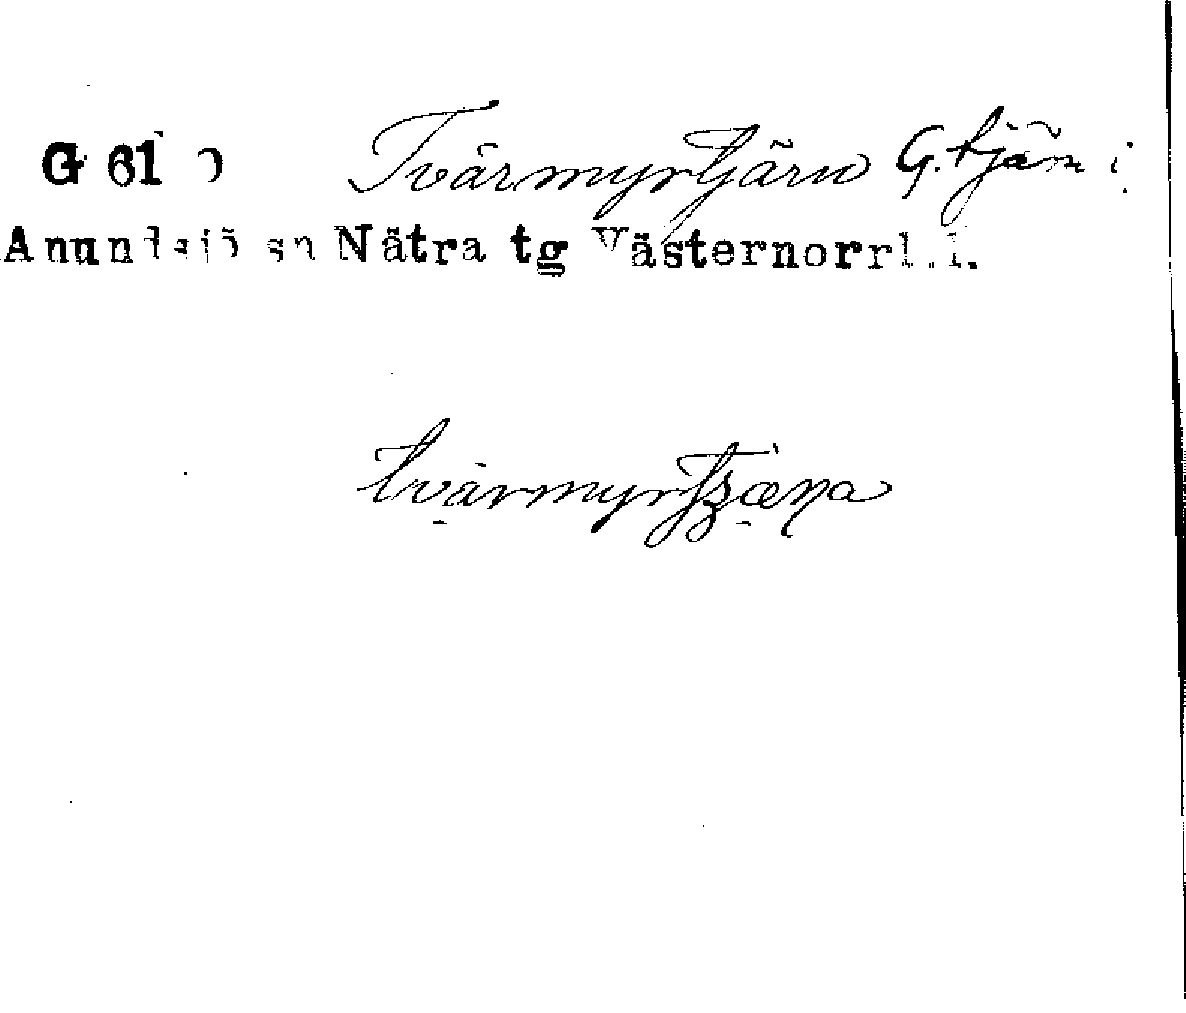 G 61 Tvärmyrtjärn G. tjärn i
Anundsjö sn Nätra tg Västernorrl.l.
tvärmyrtʒæɳa